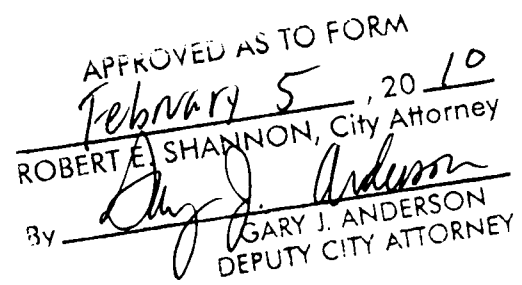 APPROVED AS TO FORM
February 5, 20 10
ROBERT E. SHANNON, City Attorney
By Gary J. Anderson
GARY J. ANDERSON
DEPUTY CITY ATTORNEY